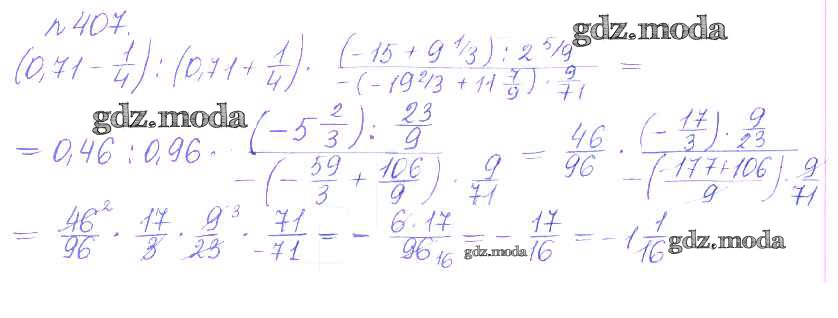 № 407.
gdz.moda
(0,71 - 1/4) : (0,71 + 1/4) · ((-15 + 9 1/3) : 2 5/9) / (-(-19 2/3 + 11 7/9) · 9/71) =
gdz.moda
= 0,46 : 0,96 · ((-5 2/3) : 23/9) / (-(-59/3 + 106/9) · 9/71) = 46/96 · ((-17/3) · 9/23) / (-((-177+106)/9) · 9/71)
= 46²/96 · 17/3 · 9³/23 · 71/-71 = - 6·17/96₁₆ = - 17/16 = -1 1/16
gdz.moda gdz.moda